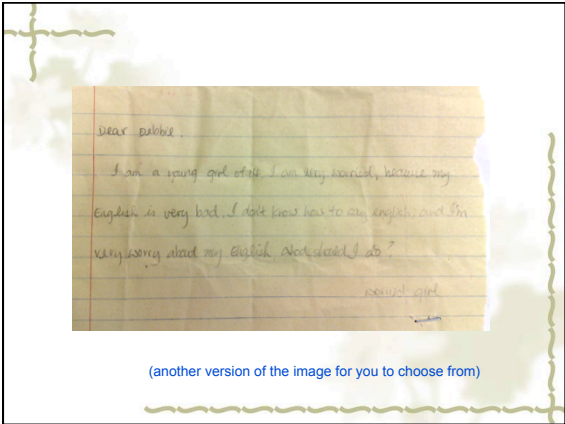 Dear Debbie.
I am a young girl of I am very worried, because my
English is very bad. I don't know how to say english; and I'm
very worry about my English should I do?
worried girl
(another version of the image for you to choose from)